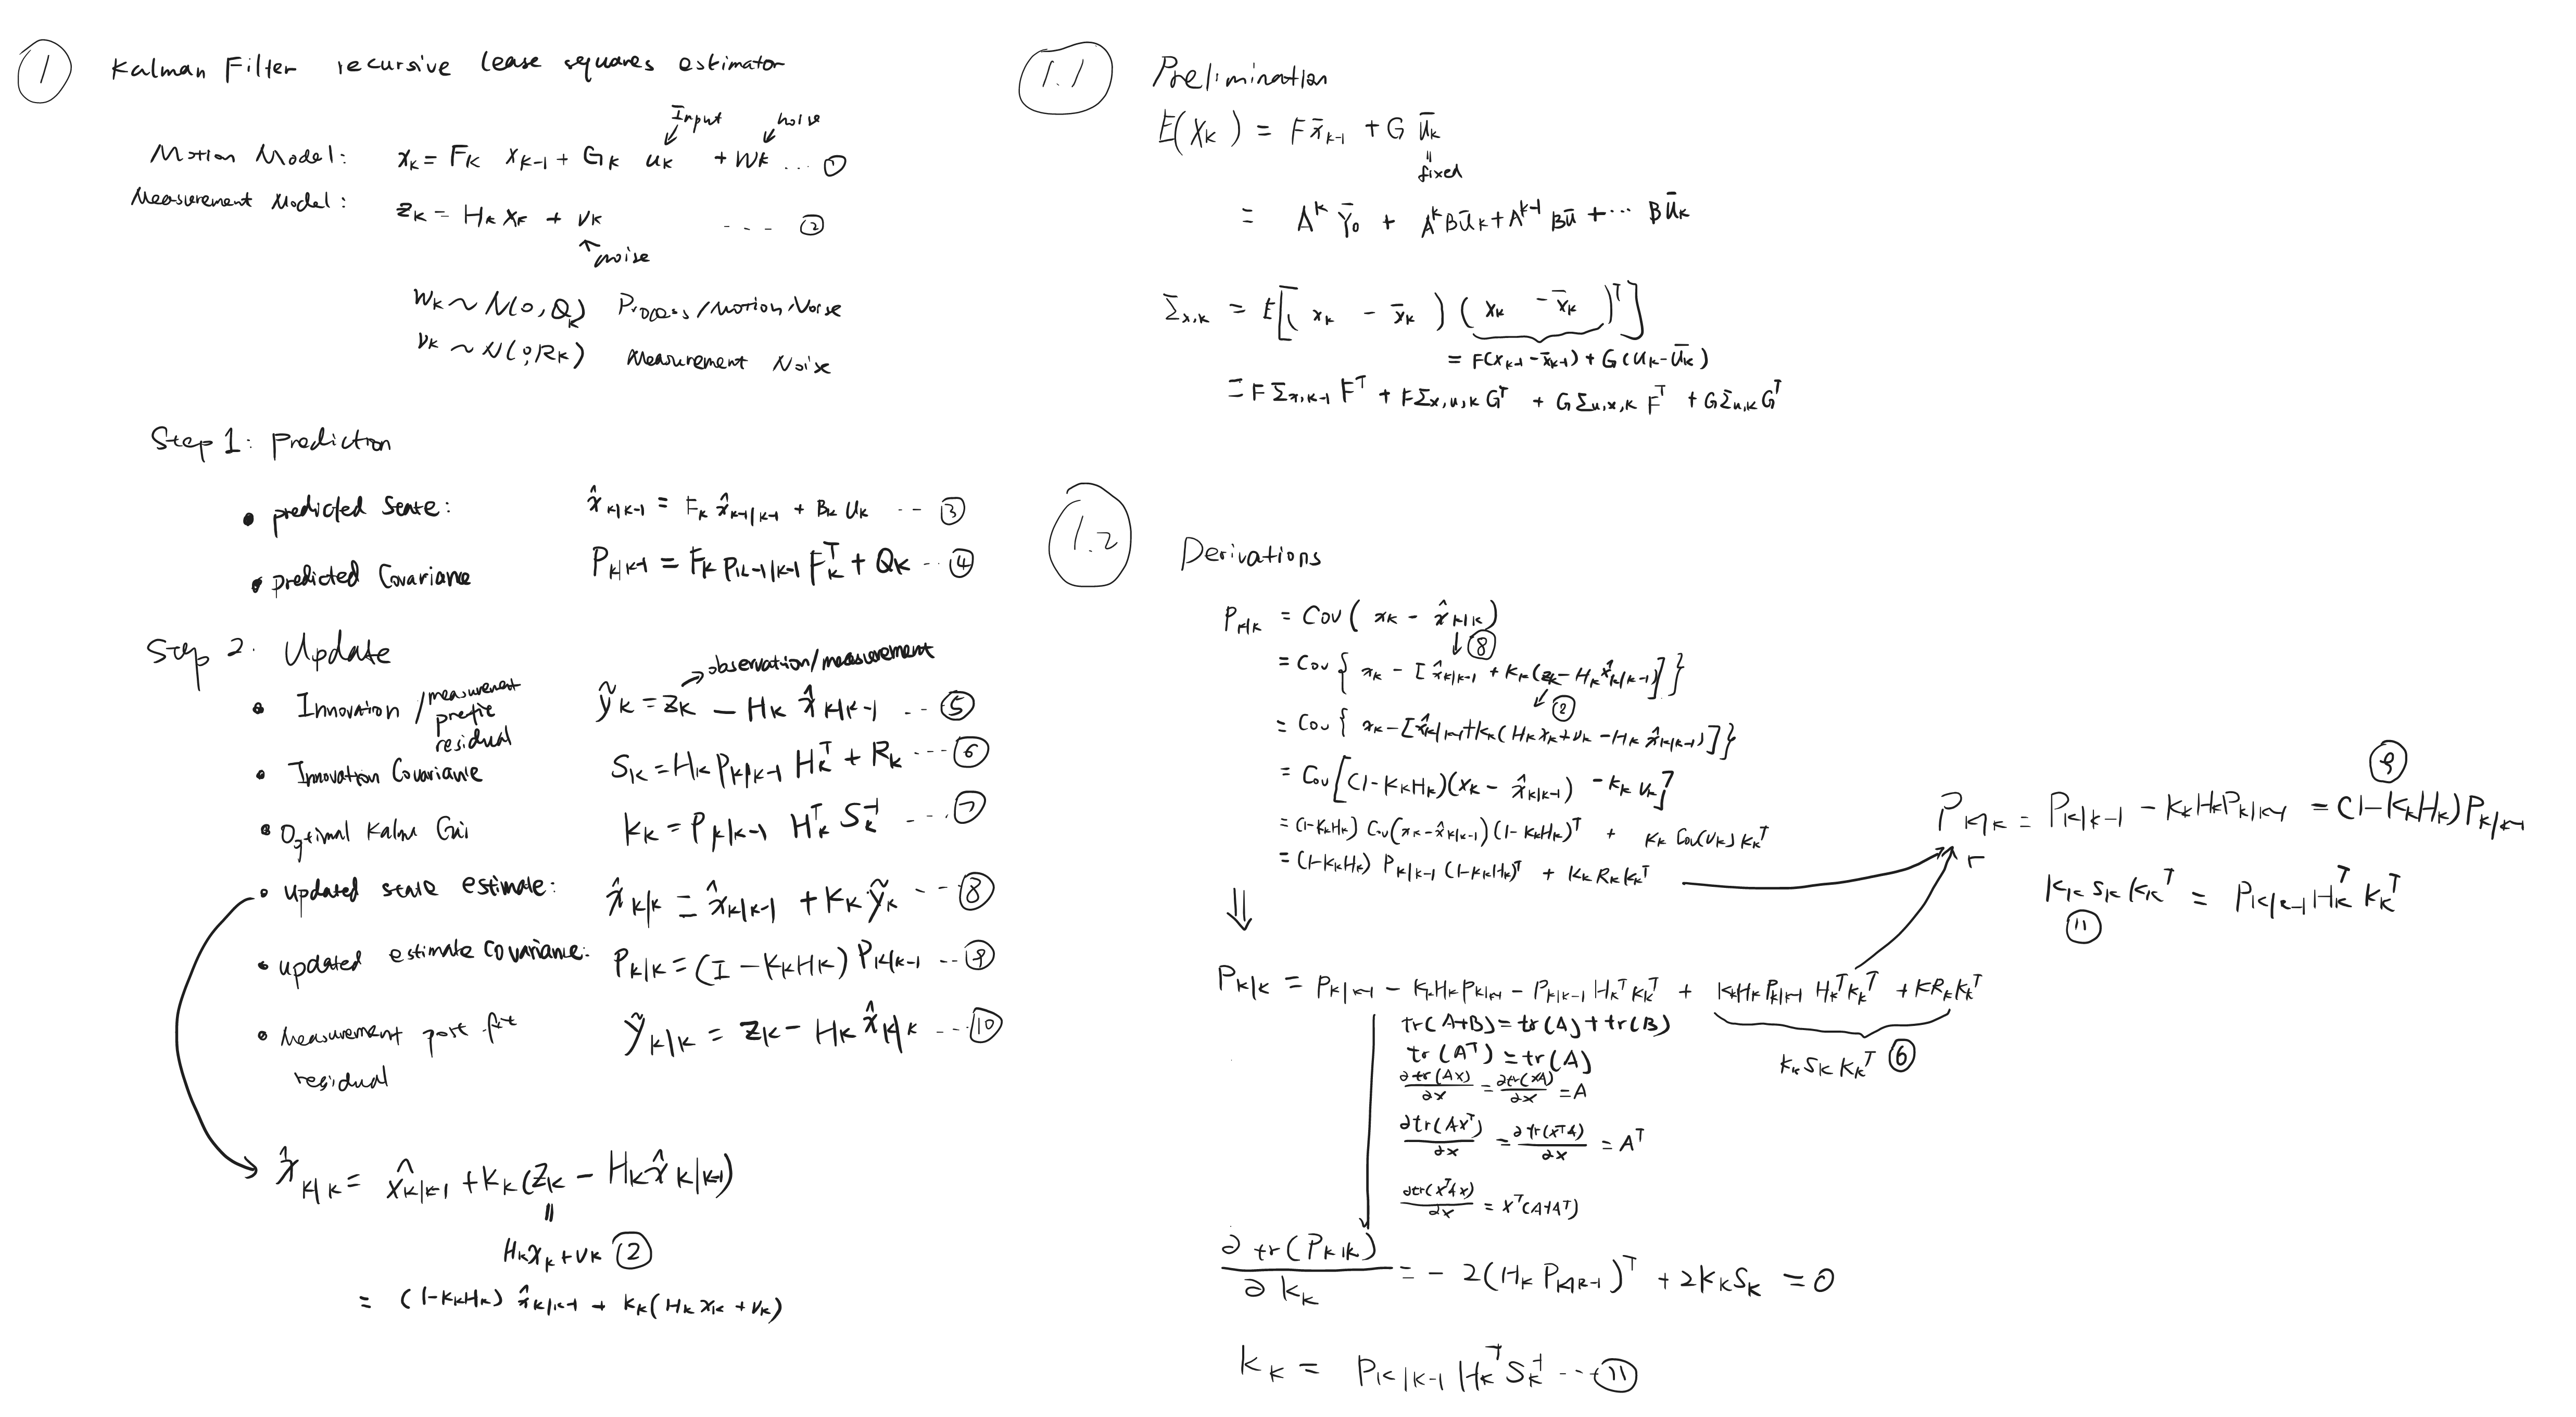 ① Kalman Filter recursive lease squares estimator
Input noise
Motion Model: x_k = F_k x_{k-1} + G_k u_k + w_k ... ①
Measurement Model: z_k = H_k x_k + v_k ... ②
noise
w_k ~ N(0, Q_k) Process/Motion Noise
v_k ~ N(0, R_k) Measurement Noise
Step 1: Prediction
• predicted state: x̂_{k|k-1} = F_k x̂_{k-1|k-1} + B_k u_k ... ③
• predicted Covariance P_{k|k-1} = F_k P_{k-1|k-1} F_k^T + Q_k ... ④
Step 2. Update
→ observation/measurement
• Innovation / measurement prefit residual ỹ_k = z_k - H_k x̂_{k|k-1} ... ⑤
• Innovation Covariance S_k = H_k P_{k|k-1} H_k^T + R_k ... ⑥
• Optimal Kalman Gain K_k = P_{k|k-1} H_k^T S_k^{-1} ... ⑦
• updated state estimate: x̂_{k|k} = x̂_{k|k-1} + K_k ỹ_k ... ⑧
• updated estimate covariance: P_{k|k} = (I - K_k H_k) P_{k|k-1} ... ⑨
• Measurement post fit residual ỹ_{k|k} = z_k - H_k x̂_{k|k} ... ⑩
x̂_{k|k} = x̂_{k|k-1} + K_k (z_k - H_k x̂_{k|k-1})
=
H_k x_k + v_k ②
= (1 - K_k H_k) x̂_{k|k-1} + K_k (H_k x_k + v_k)
1.1 Prelimination
E(x_k) = F x̄_{k-1} + G ū_k
= fixed
= A^k Ȳ_0 + A^k B ū_k + A^{k-1} B ū + ... B ū_k
Σ_{x,k} = E[(x_k - x̄_k)(x_k - x̄_k)^T]
= F(x_{k-1} - x̄_{k-1}) + G(u_k - ū_k)
= F Σ_{x,k-1} F^T + F Σ_{x,u,k} G^T + G Σ_{u,x,k} F^T + G Σ_{u,k} G^T
1.2 Derivations
P_{k|k} = Cov(x_k - x̂_{k|k})
↓ ⑧
= Cov{x_k - [x̂_{k|k-1} + K_k (z_k - H_k x̂_{k|k-1})]}
↙ ②
= Cov{x_k - [x̂_{k|k-1} + K_k (H_k x_k + v_k - H_k x̂_{k|k-1})]}
= Cov[(1 - K_k H_k)(x_k - x̂_{k|k-1}) - K_k v_k]
= (1 - K_k H_k) Cov(x_k - x̂_{k|k-1}) (1 - K_k H_k)^T + K_k Cov(v_k) K_k^T
= (1 - K_k H_k) P_{k|k-1} (1 - K_k H_k)^T + K_k R_k K_k^T
⇓
P_{k|k} = P_{k|k-1} - K_k H_k P_{k|k-1} - P_{k|k-1} H_k^T K_k^T + K_k H_k P_{k|k-1} H_k^T K_k^T + K R_k K_k^T
K_k S_k K_k^T ⑥
tr(A+B) = tr(A) + tr(B)
tr(A^T) = tr(A)
∂tr(AX)/∂X = ∂tr(XA)/∂X = A
∂tr(AX^T)/∂X = ∂tr(X^T A)/∂X = A^T
∂tr(X^T A X)/∂X = X^T (A + A^T)
∂ tr(P_{k|k}) / ∂ K_k = - 2(H_k P_{k|k-1})^T + 2 K_k S_k = 0
K_k = P_{k|k-1} H_k^T S_k^{-1} ... ⑪
⑨
P_{k|k} = P_{k|k-1} - K_k H_k P_{k|k-1} = (1 - K_k H_k) P_{k|k-1}
K_k S_k K_k^T = P_{k|k-1} H_k^T K_k^T
⑪